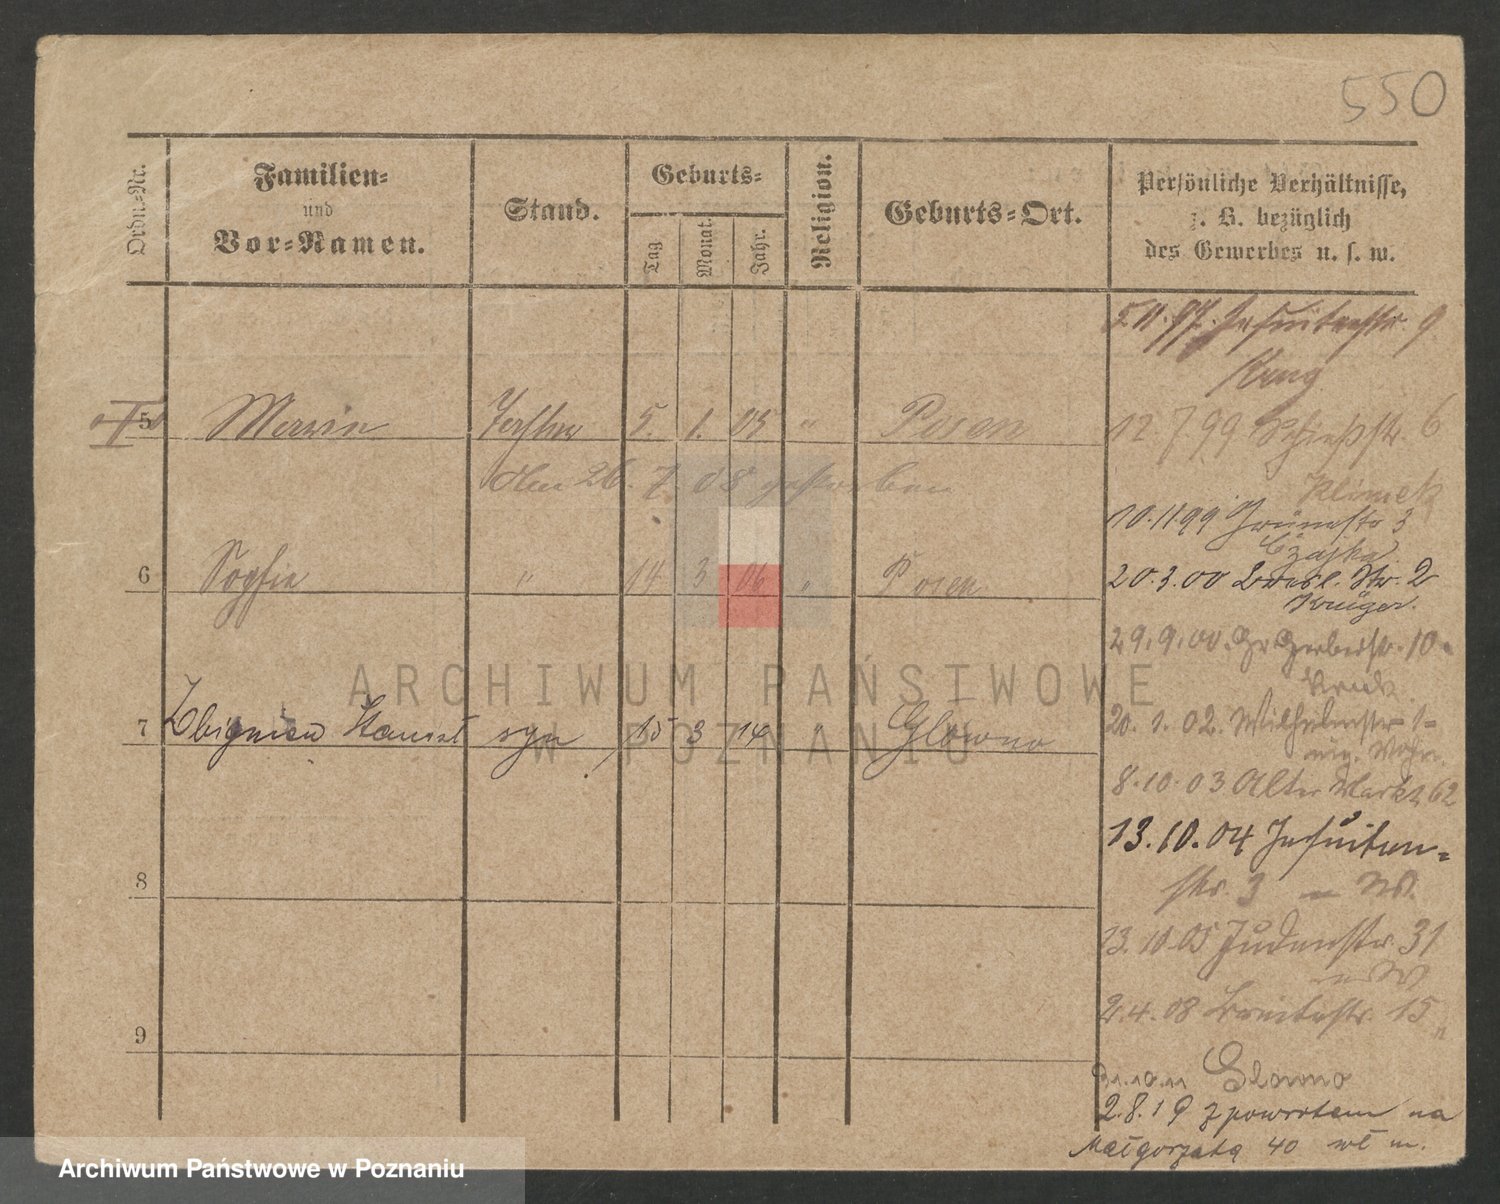 550
Ordn.-Nr.
Familien-
und
Vor-Namen.
Stand.
Geburts-
Tag.
Monat.
Jahr.
Religion.
Geburts-Ort.
Persönliche Verhältnisse,
z. B. bezüglich
des Gewerbes u. s. w.
5.11.97. Jesuitenstr. 9
Krug
5 Marie Tochter 5. 1. 05 " Posen
12.7.99 Schießstr. 6
den 26. 7. 08 gestorben
Klimek
10.11.99 Grünestr 3
Czajka
6 Sophie " 14 3 06 " Posen
20.3.00 Bresl. Str. 2
Krüger.
29.9.00. Gr Gerberstr. 10
20. 1. 02. Wilhelmstr 1
eig. Wohn.
7 Zbigniew syn 15 3 14 " Glowno
8.10.03 Alter Markt 62
13.10.04 Jesuiten-
str. 3
13.10.05 Judenstr. 31
8
2.4.08 Breitestr. 15
9
31.10.11 Glowno
2.8.19 z powrotem na
Małgorzatą 40 wł m.
ARCHIWUM PAŃSTWOWE
W POZNANIU
Archiwum Państwowe w Poznaniu